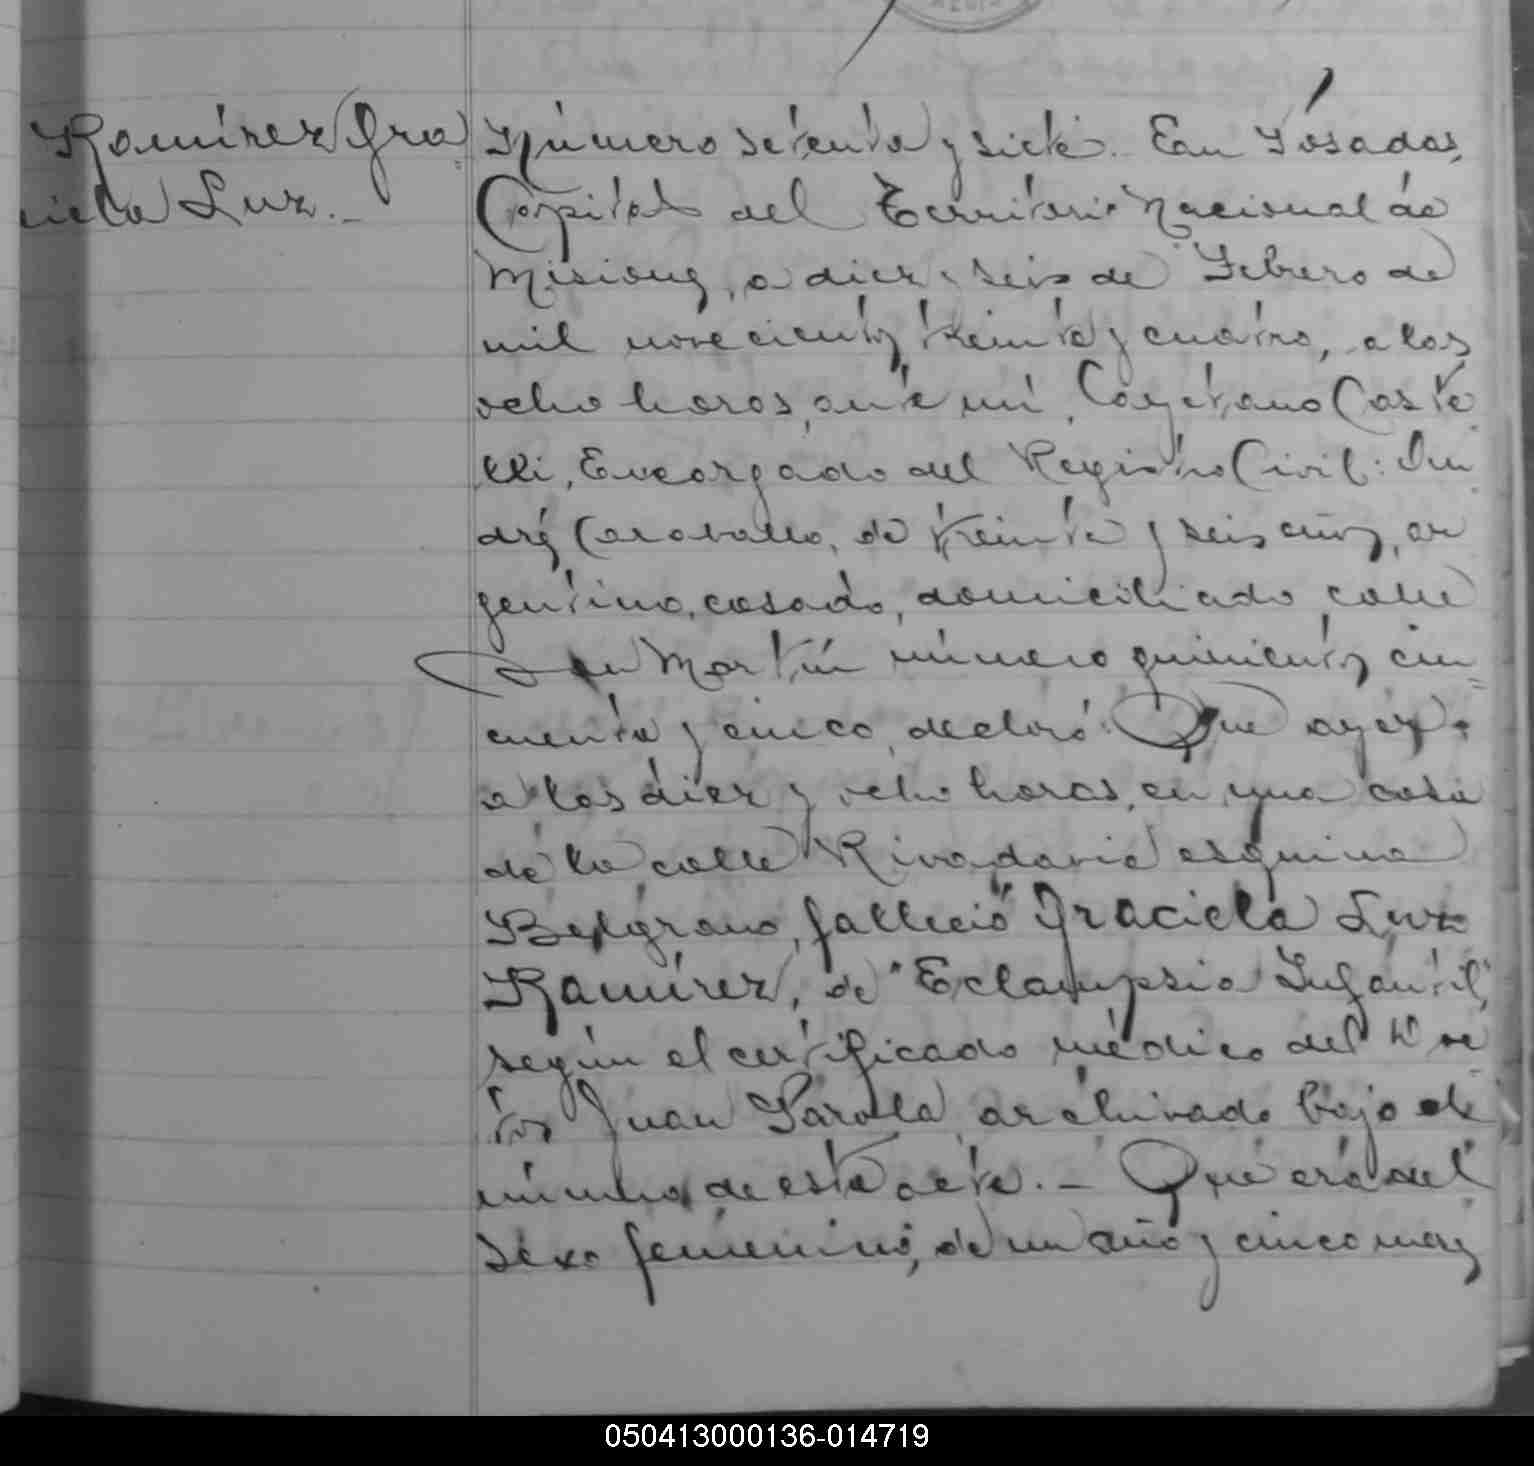 Ramírez Gra=
ciela Luz.-
Número setenta y siete. En Posadas,
Capital del Territorio Nacional de
Misiones, a diez y seis de Febrero de
mil novecientos treinta y cuatro, a las
ocho horas, ante mí, Cayetano Caste
lli, Encargado del Registro Civil: An
drés Caraballo, de treinta y seis años, ar
gentino, casado, domiciliado calle
San Martín número quinientos cin=
cuenta y cinco, declaró: Que ayer
a las diez y ocho horas, en una casa
de la calle Rivadavia esquina
Belgrano, falleció Graciela Luz
Ramírez, de "Eclampsia Infantil",
según el certificado médico del
Juan Parola archivado bajo el
número de esta acta.- Que era del
sexo femenino, de un año y cinco meses
050413000136-014719